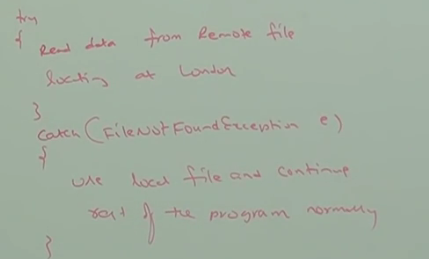 try
{ Read data from Remote file
locating at London
}
catch (FileNotFoundException e)
{
use local file and continue
rest of the program normally
}